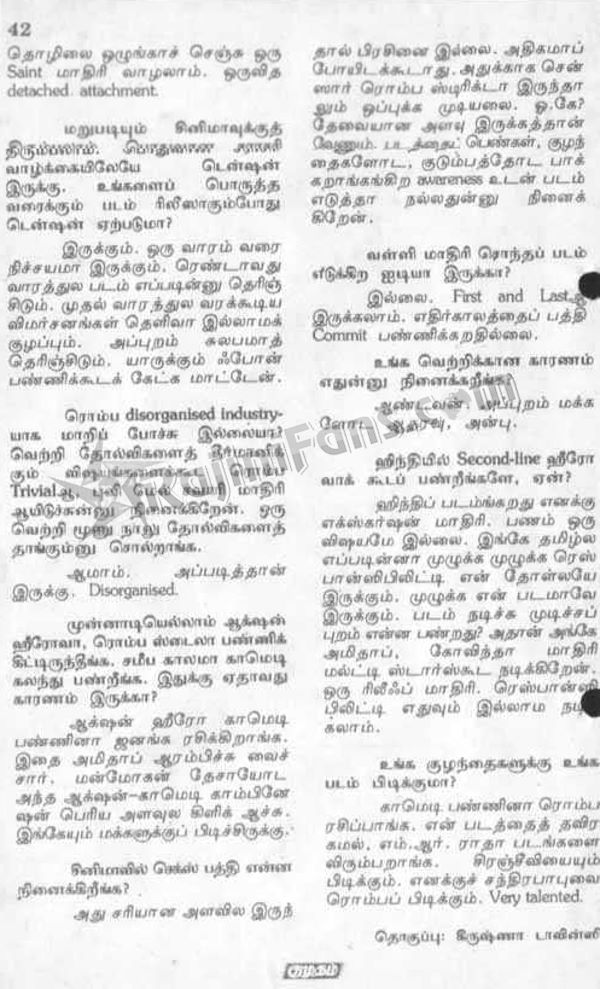 42
தொழிலை ஒழுங்காச் செஞ்சு ஒரு
Saint மாதிரி வாழலாம். ஒருவித
detached attachment.
மறுபடியும் சினிமாவுக்குத்
திரும்பலாம். பொதுவான
வாழ்க்கையிலேயே டென்ஷன்
இருக்கு. உங்களைப் பொருத்த
வரைக்கும் படம் ரிலீஸாகும்போது
டென்ஷன் ஏற்படுமா?
இருக்கும். ஒரு வாரம் வரை
நிச்சயமா இருக்கும். ரெண்டாவது
வாரத்துல படம் எப்படின்னு தெரிஞ்
சிடும். முதல் வாரத்துல வரக்கூடிய
விமர்சனங்கள் தெளிவா இல்லாமக்
குழப்பும். அப்புறம் சுலபமாத்
தெரிஞ்சிடும். யாருக்கும் ஃபோன்
பண்ணிக்கூடக் கேட்க மாட்டேன்.
ரொம்ப disorganised industry-
யாக மாறிப் போச்சு இல்லையா?
வெற்றி தோல்விகளைத் தீர்மானிக்
கும் விஷயங்களைக்கூட ரொம்ப
Trivialஆ மாதிரி
ஆயிடுச்சுன்னு நினைக்கிறேன். ஒரு
வெற்றி மூணு நாலு தோல்விகளைத்
தாங்கும்னு சொல்றாங்க.
ஆமாம். அப்படித்தான்
இருக்கு. Disorganised.
முன்னாடியெல்லாம் ஆக்‌ஷன்
ஹீரோவா, ரொம்ப ஸ்டைலா பண்ணிக்
கிட்டிருந்தீங்க. சமீப காலமா காமெடி
கலந்து பண்றீங்க. இதுக்கு ஏதாவது
காரணம் இருக்கா?
ஆக்‌ஷன் ஹீரோ காமெடி
பண்ணினா ஜனங்க ரசிக்கிறாங்க.
இதை அமிதாப் ஆரம்பிச்சு வைச்
சார். மன்மோகன் தேசாயோட
அந்த ஆக்‌ஷன்-காமெடி காம்பினே
ஷன் பெரிய அளவுல கிளிக் ஆச்சு.
இங்கேயும் மக்களுக்குப் பிடிச்சிருக்கு.
சினிமாவில் செக்ஸ் பத்தி என்ன
நினைக்கிறீங்க?
அது சரியான அளவில இருந்
தால் பிரசினை இல்லை. அதிகமாப்
போயிடக்கூடாது. அதுக்காக சென்
ஸார் ரொம்ப ஸ்டிரிக்டா இருந்தா
லும் ஒப்புக்க முடியலை. ஓ.கே?
தேவையான அளவு இருக்கத்தான்
வேணும். படத்தைப் பெண்கள், குழந்
தைகளோட, குடும்பத்தோட பாக்
கறாங்கங்கிற awareness உடன் படம்
எடுத்தா நல்லதுன்னு நினைக்
கிறேன்.
வள்ளி மாதிரி சொந்தப் படம்
எடுக்கிற ஐடியா இருக்கா?
இல்லை. First and Lastஆ
இருக்கலாம். எதிர்காலத்தைப் பத்தி
Commit பண்ணிக்கறதில்லை.
உங்க வெற்றிக்கான காரணம்
எதுன்னு நினைக்கறீங்க?
ஆண்டவன். அப்புறம் மக்க
ளோட ஆதரவு, அன்பு.
ஹிந்தியில் Second-line ஹீரோ
வாக் கூடப் பண்றீங்களே, ஏன்?
ஹிந்திப் படம்ங்கறது எனக்கு
எக்ஸ்கர்ஷன் மாதிரி. பணம் ஒரு
விஷயமே இல்லை. இங்கே தமிழ்ல
எப்படின்னா முழுக்க முழுக்க ரெஸ்
பான்ஸிபிலிட்டி என் தோள்லயே
இருக்கும். முழுக்க என் படமாவே
இருக்கும். படம் நடிச்சு முடிச்சப்
புறம் என்ன பண்றது? அதான் அங்கே
அமிதாப், கோவிந்தா மாதிரி
மல்ட்டி ஸ்டார்ஸ்கூட நடிக்கிறேன்.
ஒரு ரிலீஃப் மாதிரி. ரெஸ்பான்ஸி
பிலிட்டி எதுவும் இல்லாம நடிக்
கலாம்.
உங்க குழந்தைகளுக்கு உங்க
படம் பிடிக்குமா?
காமெடி பண்ணினா ரொம்ப
ரசிப்பாங்க. என் படத்தைத் தவிர
கமல், எம்.ஆர். ராதா படங்களை
விரும்பறாங்க. சிரஞ்சீவியையும்
பிடிக்கும். எனக்குச் சந்திரபாபுவை
ரொம்பப் பிடிக்கும். Very talented.
தொகுப்பு: கிருஷ்ணா டாவின்ஸி
குமுதம்
RajiniFans.com